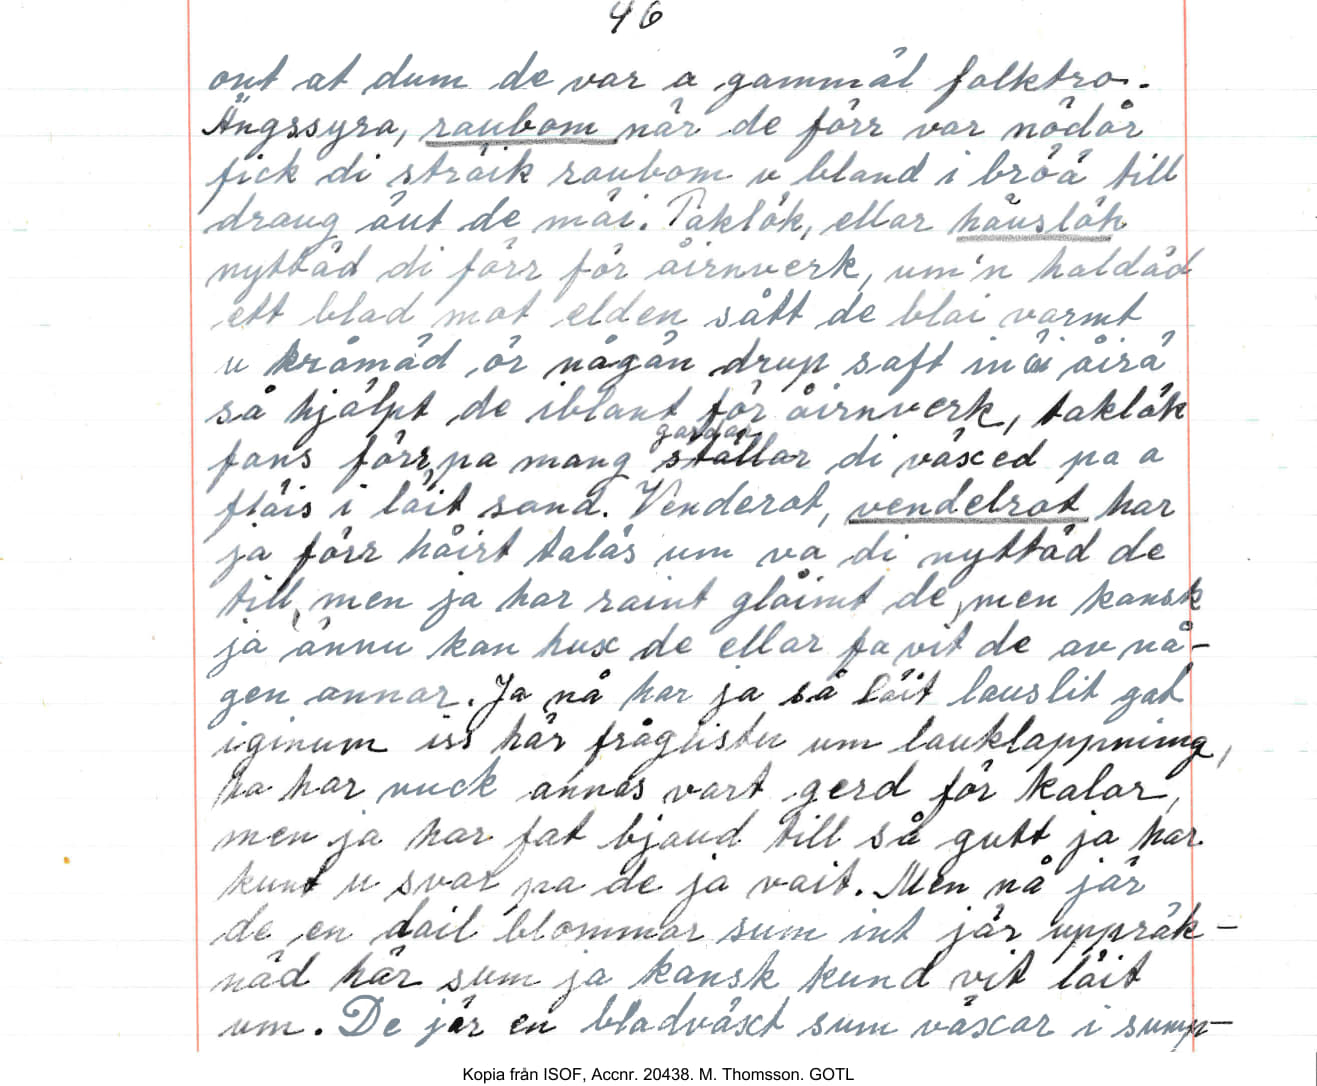 46
ont at dum de var a gammäl falktro.
Ängssyra, raubom när de förr var nödår
fick di sträik raubom u bland i bröä till
draug äut de mäi. Taklök, ellar häuslök
nyttäd di förr för åirnverk, um'n haldäd
ett blad mot elden sått de blai varmt
u kramäd ör någän drup saft in äi åirä
så hjälpt de iblant för åirnverk, taklök
gardar
fans förr, pa mang ställar di växed pa a
fläis i läit sand. Venderot, vendelrot har
ja förr håirt taläs um va di nyttäd de
till, men ja har raint glåimt de, men kansk
ja ännu kan hux de ellar fa vit de av nå-
gen annar. Ja nå har ja så läit lauslit gat
iginum iss här fråglistu um lauklappning,
ha har nuck annas vart gerd för kalar,
men ja har fat bjaud till så gutt ja har
kunt u svar pa de ja vait. Men nå jär
de en dail blommar sum int jär uppräk-
näd här sum ja kansk kund vit läit
um. De jär en bladväxt sum växar i sump-
Kopia från ISOF, Accnr. 20438. M. Thomsson. GOTL